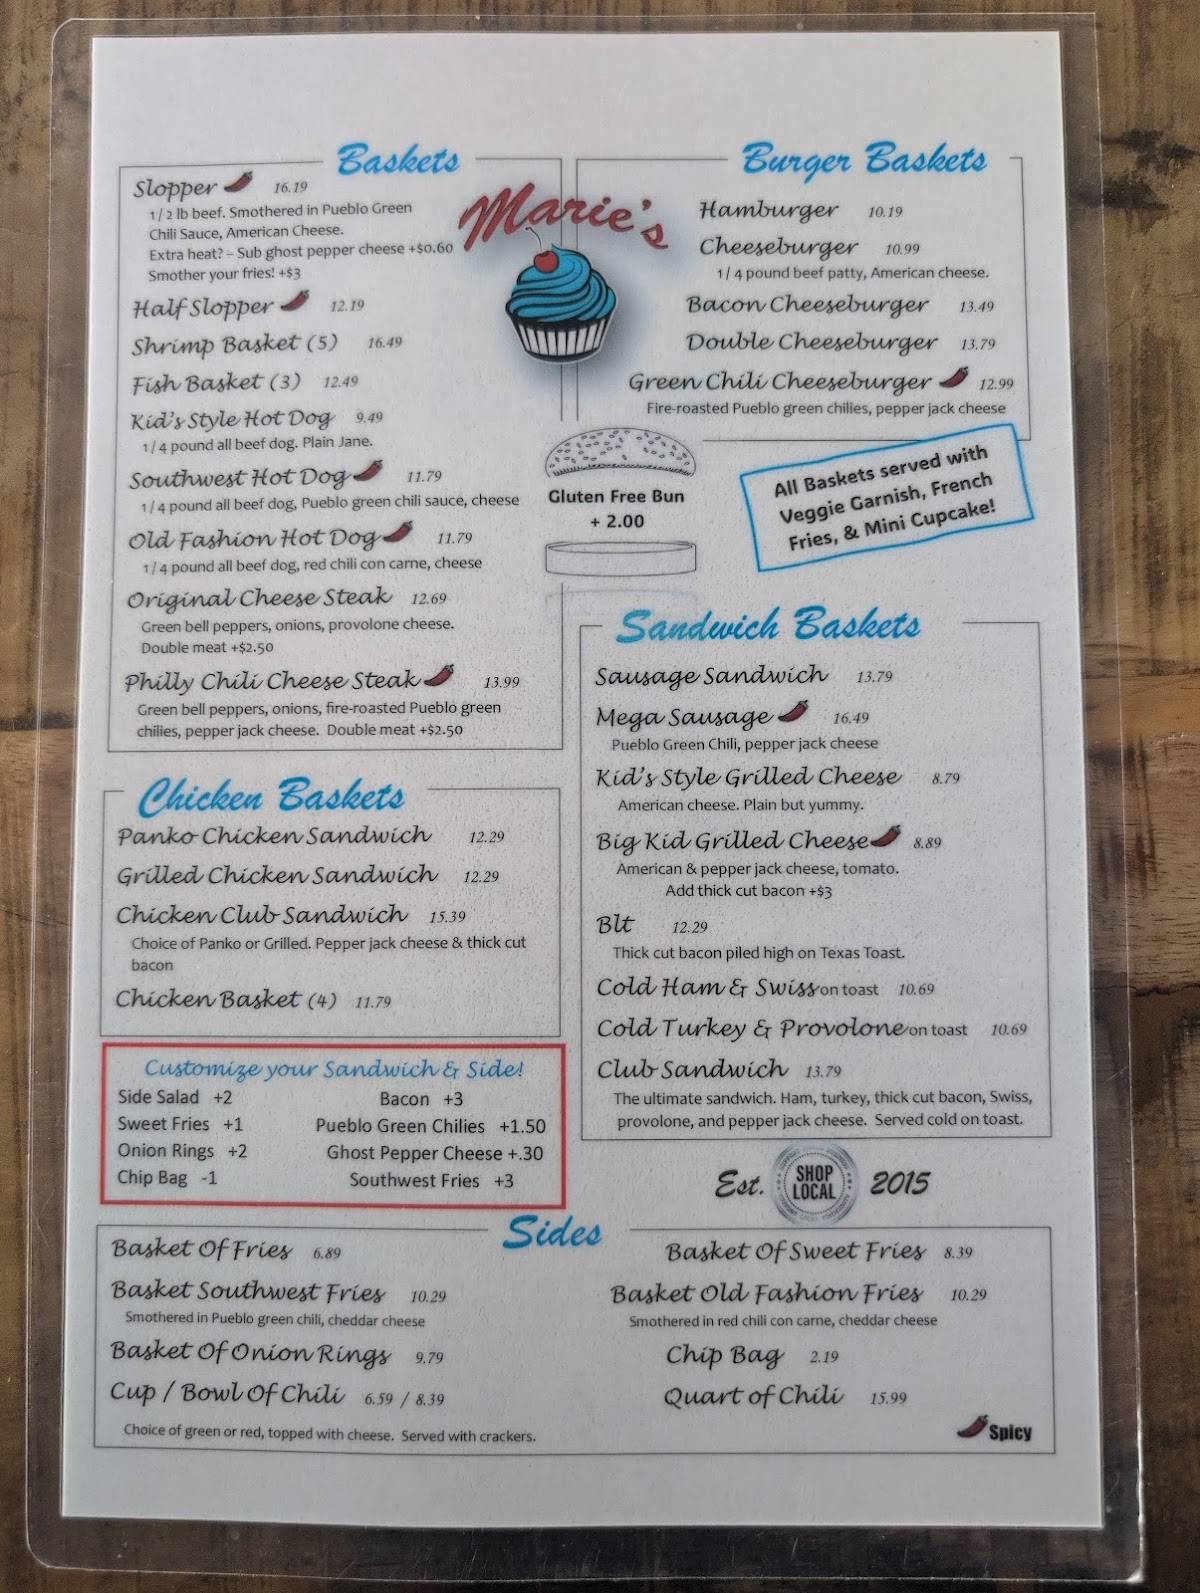 Baskets
Slopper 16.19
1/2 lb beef. Smothered in Pueblo Green
Chili Sauce, American Cheese.
Extra heat? – Sub ghost pepper cheese +$0.60
Smother your fries! +$3
Half Slopper 12.19
Shrimp Basket (5) 16.49
Fish Basket (3) 12.49
Kid's Style Hot Dog 9.49
1/4 pound all beef dog. Plain Jane.
Southwest Hot Dog 11.79
1/4 pound all beef dog, Pueblo green chili sauce, cheese
Old Fashion Hot Dog 11.79
1/4 pound all beef dog, red chili con carne, cheese
Original Cheese Steak 12.69
Green bell peppers, onions, provolone cheese.
Double meat +$2.50
Philly Chili Cheese Steak 13.99
Green bell peppers, onions, fire-roasted Pueblo green
chilies, pepper jack cheese. Double meat +$2.50
Marie's
Burger Baskets
Hamburger 10.19
Cheeseburger 10.99
1/4 pound beef patty, American cheese.
Bacon Cheeseburger 13.49
Double Cheeseburger 13.79
Green Chili Cheeseburger 12.99
Fire-roasted Pueblo green chilies, pepper jack cheese
Gluten Free Bun
+ 2.00
All Baskets served with
Veggie Garnish, French
Fries, & Mini Cupcake!
Chicken Baskets
Panko Chicken Sandwich 12.29
Grilled Chicken Sandwich 12.29
Chicken Club Sandwich 15.39
Choice of Panko or Grilled. Pepper jack cheese & thick cut
bacon
Chicken Basket (4) 11.79
Customize your Sandwich & Side!
Side Salad +2 Bacon +3
Sweet Fries +1 Pueblo Green Chilies +1.50
Onion Rings +2 Ghost Pepper Cheese +.30
Chip Bag -1 Southwest Fries +3
Sandwich Baskets
Sausage Sandwich 13.79
Mega Sausage 16.49
Pueblo Green Chili, pepper jack cheese
Kid's Style Grilled Cheese 8.79
American cheese. Plain but yummy.
Big Kid Grilled Cheese 8.89
American & pepper jack cheese, tomato.
Add thick cut bacon +$3
Blt 12.29
Thick cut bacon piled high on Texas Toast.
Cold Ham & Swiss on toast 10.69
Cold Turkey & Provolone on toast 10.69
Club Sandwich 13.79
The ultimate sandwich. Ham, turkey, thick cut bacon, Swiss,
provolone, and pepper jack cheese. Served cold on toast.
Est. SHOP LOCAL 2015
Sides
Basket Of Fries 6.89
Basket Southwest Fries 10.29
Smothered in Pueblo green chili, cheddar cheese
Basket Of Onion Rings 9.79
Cup / Bowl Of Chili 6.59 / 8.39
Choice of green or red, topped with cheese. Served with crackers.
Basket Of Sweet Fries 8.39
Basket Old Fashion Fries 10.29
Smothered in red chili con carne, cheddar cheese
Chip Bag 2.19
Quart of Chili 15.99
Spicy